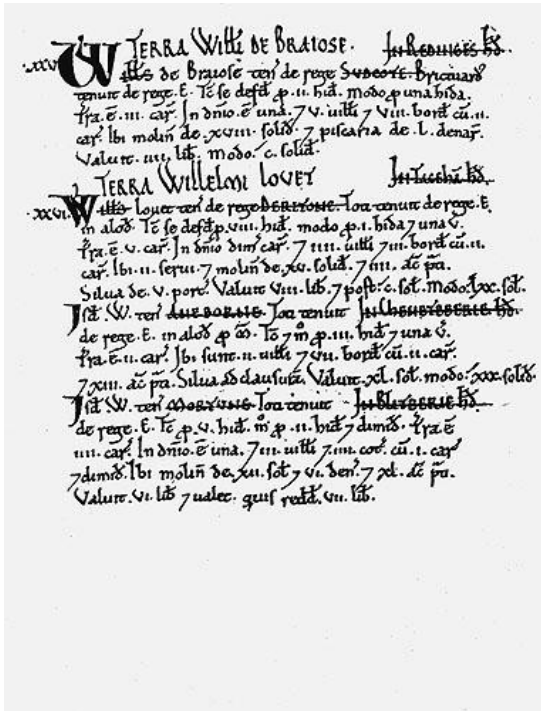 TERRA Willi DE BRAIOSE. In REDINGES hđ.
.xxv. Wills de Braiose ten' de rege SVDCOTE. Brictuard
tenuit de rege. E. Tc̄ se defđ ꝑ .ii. hiđ. modo ꝑ una hida.
Tr̄a. ē. iii. car̄. In dn̄io ē una. ⁊ v. uilli ⁊ viii. borđ cū .ii.
car̄. Ibi molin̄ de. xviii. soliđ. ⁊ piscaria de. l. denar̄.
Valuit. iiii. lib̄. modo. c. soliđ.
TERRA WILLELMI LOVET In Taceham hđ.
.xxvi. Wills Louet ten' de rege BERITONE. Tou tenuit de rege. E.
in alođ. Tc̄ se defđ ꝑ .viii. hiđ. modo ꝑ .i. hida ⁊ una v̄.
Tr̄a. ē. v. car̄. In dn̄io dim̄ car̄. ⁊ iiii. uilli ⁊ iii. borđ cū .ii.
car̄. Ibi .ii. serui. ⁊ molin̄ de. xv. soliđ. ⁊ iiii. ac̄ p̄ti.
Silua de. v. porc̄. Valuit viii. lib̄. ⁊ post̄. c. sol̄. modo. lxx. sol̄.
Isđ. W. ten' ANEBORNE. Tou tenuit In CHENETEBERIE hđ.
de rege. E. in alođ ꝑ m̄. Tc̄ ⁊ m̊ ꝑ .iii. hiđ ⁊ una v̄.
Tr̄a. ē. ii. car̄. Ibi sunt .ii. uilli ⁊ vii. borđ cū .ii. car̄.
⁊ xiii. ac̄ p̄ti. Silua ad clausurā. Valuit. xl. sol̄. modo. xxx. soliđ.
Isđ W. ten' MORTUNE. Tou tenuit In BLITBERIE hđ.
de rege. E. Tc̄ ꝑ .v. hiđ. m̊ ꝑ .ii. hiđ ⁊ dimiđ. Tr̄a ē
iiii. car̄. In dn̄io. ē una. ⁊ iii. uilli ⁊ iiii. cot̄. cū .i. car̄
⁊ dimiđ. Ibi molin̄ de. xii. sol̄ ⁊ vi. den̄. ⁊ xl. ac̄ p̄ti.
Valuit. vi. lib̄ ⁊ ualet. quis redđ. vii. lib̄.